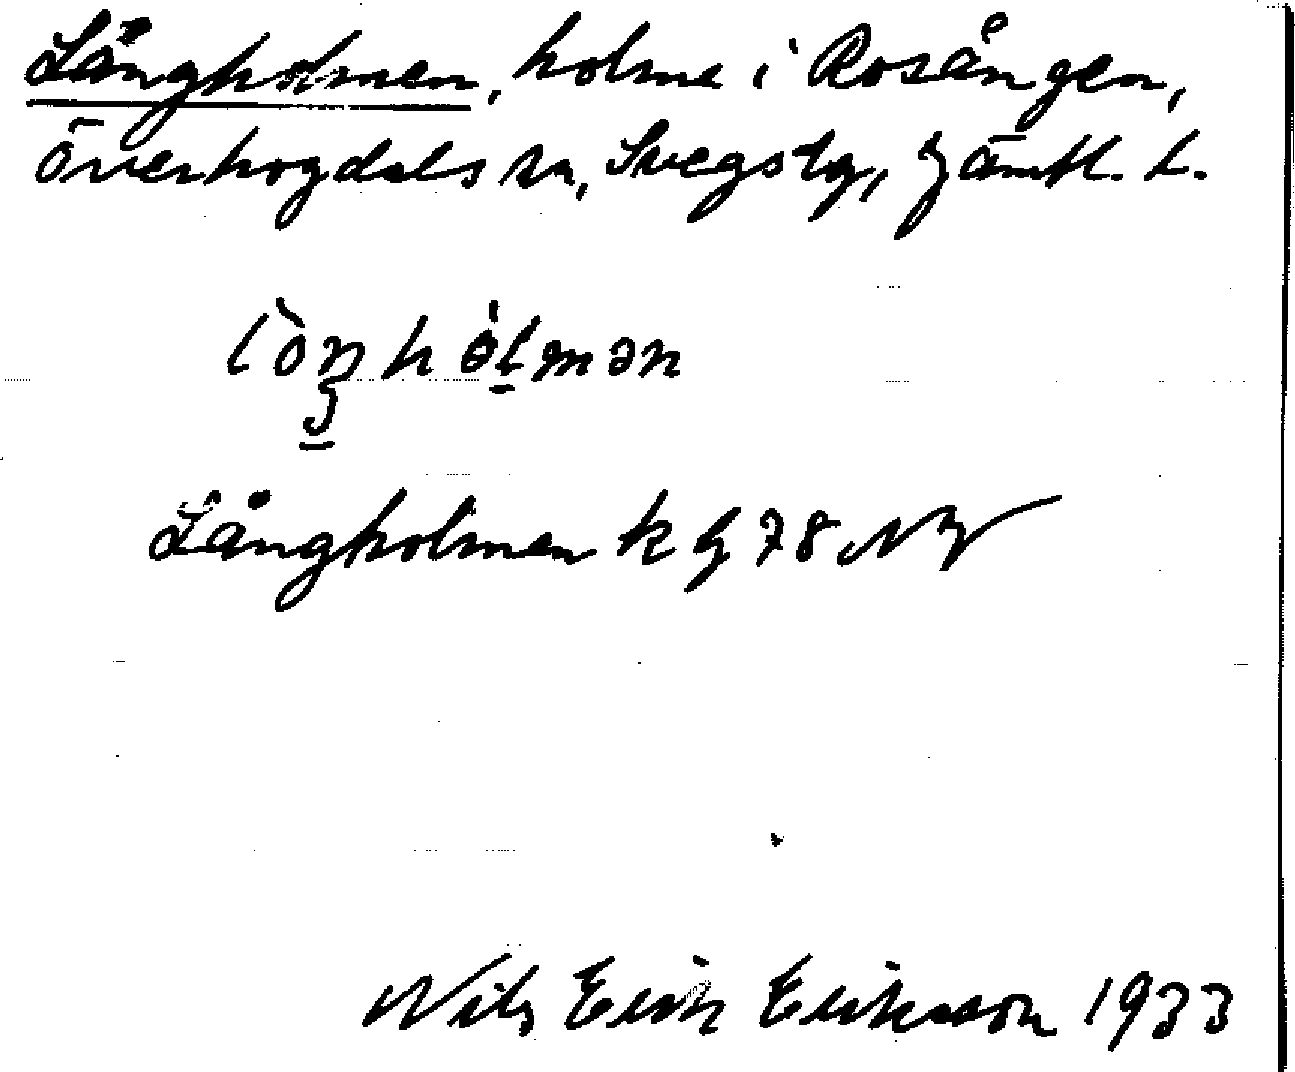 Långholmen, holme i Rosången,
Överhogdals sn, Svegs tg, Jämtl. L.
Långholmen k g 78 NV
Nils Erik Eriksson 1933